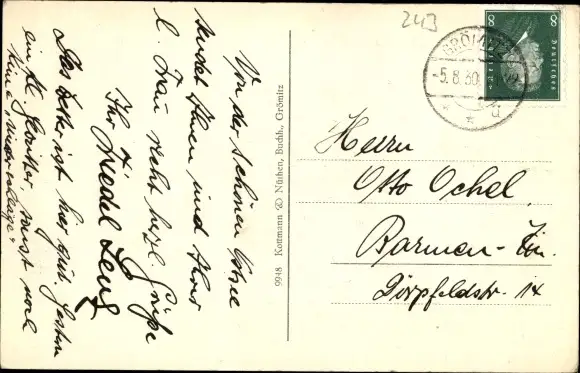 Von der schönen Ostsee
sendet Ihnen und Ihrer
l. Frau recht herzl. Grüße
Ihr Friedel Lenz
Das Wetter ist hier gut. Gestern
ein kl. Gewitter, sonst noch
keine
9948 Kottmann & Nüthen, Buchh., Grömitz
243
GRÖMITZ
-5.8.30
8 Deutsches Reich 8
Herrn
Otto Ochel
Barmen-
Dörpfeldstr. 14